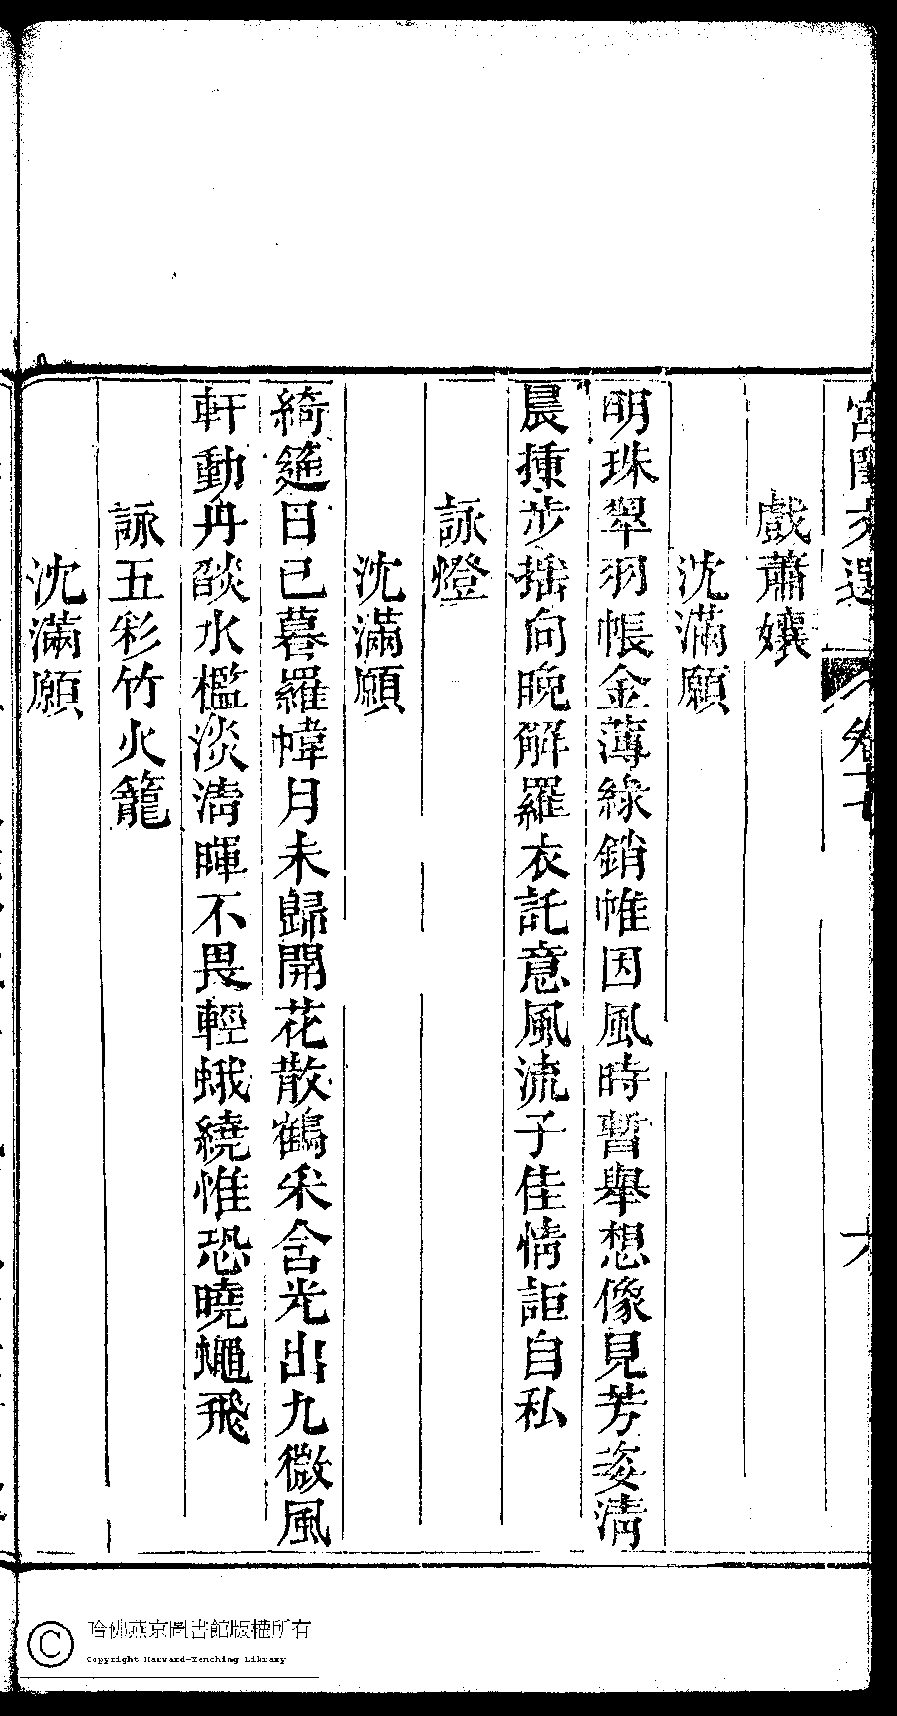 宮閨文選 卷十七 六
戲蕭孃
沈滿願
明珠翠羽帳金薄綠銷帷因風時暫舉想像見芳姿淸
晨插步摇向晚解羅衣託意風流子佳情詎自私
詠燈
沈滿願
綺筵日已暮羅幃月未歸開花散鶴釆含光出九微風
軒動丹燄水檻淡淸暉不畏輕蛾繞惟恐曉蠅飛
詠五彩竹火籠
沈滿願
哈佛燕京圖書館版權所有
Copyright Harvard-Yenching Library